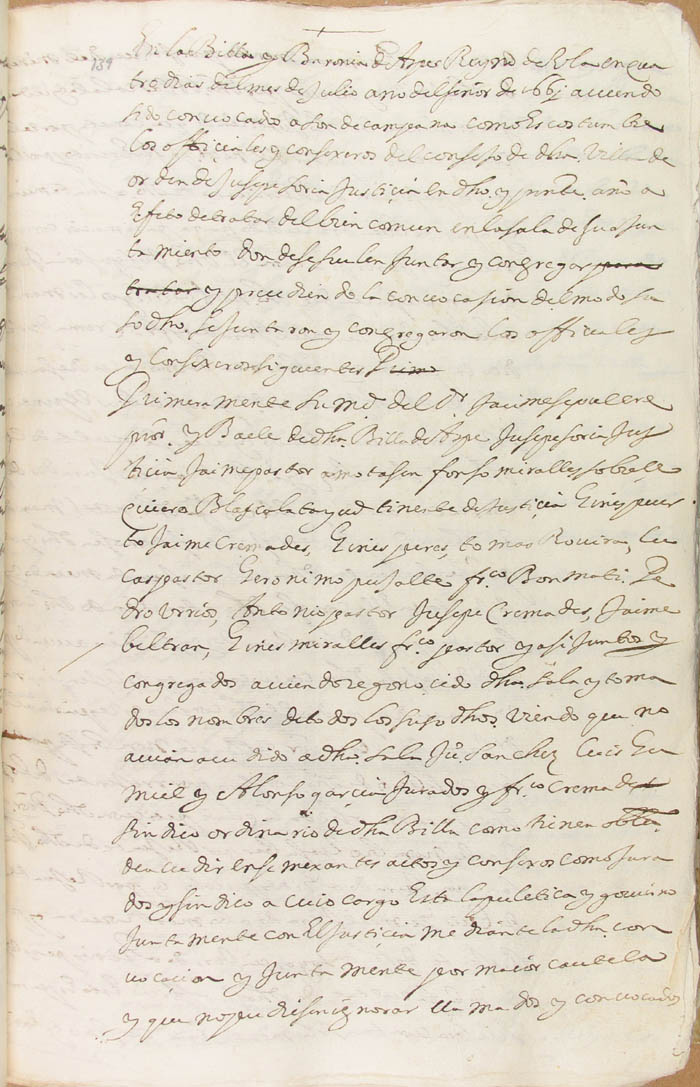 139
En la Billa y Baronia de Aspe Reyno de Vala en qua
tro dias del mes de Julio año del señor de 1661 auiendo
sido conuocados a son de campana como es costumbre
los officiales y consexeros del consejo de dha. Villa de
orden de Jusepe Soria Justiçia en dho. y pnte. año a
efeto de tratar del bien comun en la sala de su ajun
tamiento donde se suelen juntar y congregar para
tratar y preçediendo la conuocasion del modo su
sodho. se juntaron y congregaron los officiales
y consexeros siguientes Primo
Primeramente su md. del Dr. Jaime sepulcre
pror. y Baele de dha. Billa de Aspe Jusepe soria Jus
ticia, Jaime pastor almotasen fonso miralles sobrese
quiero Blas calatayud tinente de Justiçia Gines puer
to Jaime Cremades, Gines peres, tomas Rouira, Lu
cas pastor Geronimo pujalte frco. Bonmati. Pe
dro Vrrios, Antonio pastor Jusepe Cremades, Jaime
beltran, Gines miralles frco. pastor y asi juntos y
congregados auiendo regonocido dha. sala y toma
dos los nombres de todos los susodhos. viendo que no
auian acudido a dha. sala Ju. Sanchez Luis Gu
miel y Alonso garçia Jurados y frco. Cremades
sindico ordinario de dha Billa como tienen obliga.
de acudir en semexantes actos y consexos como Jura
dos y sindico a cuio cargo esta la puletica y gouierno
juntamente con El Justiçia mediante la dha. con
uocaçion y juntamente por maior cautela
y que no pudiesen ignorar llamados y conuocados